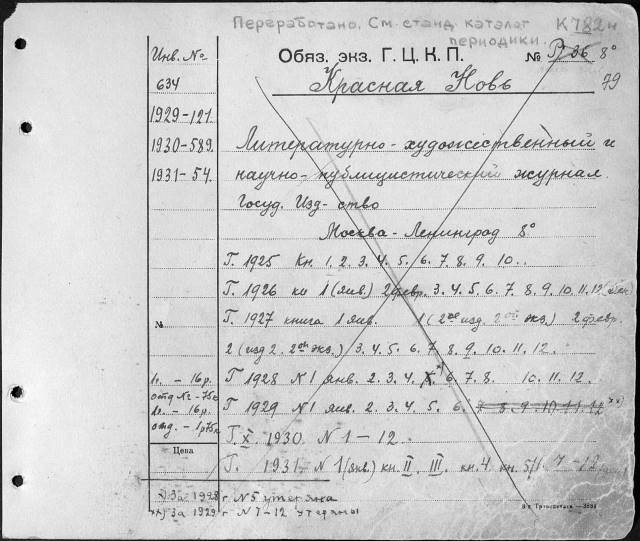 Переработано. См. станд. каталог К 782н
периодики.
Инв. №
Обяз. экз. Г. Ц. К. П. № 8°
634
Красная Новь 79
1929-121.
1930-589.
1931-54.
Литературно-художественный и
научно-публицистический журнал.
Госуд. Изд-ство
Москва-Ленинград 8°
Г. 1925 Кн. 1. 2. 3. 4. 5. 6. 7. 8. 9. 10..
Г. 1926 кн 1 (янв) 2 февр. 3. 4. 5. 6. 7. 8. 9. 10. 11. 12
Г. 1927 книга 1 янв. 1 (2ое изд. 2ой экз.) 2 февр.
№
2 (изд 2. 2ой экз.) 3. 4. 5. 6. 7. 8. 9. 10. 11. 12.
1г. - 16р. Г 1928 N 1 янв. 2. 3. 4. X. x) 6. 7. 8. 10. 11. 12.
отд № - 75к
1г. - 16р. Г 1929 N 1 янв. 2. 3. 4. 5. 6. 7 8. 9. 10. 11. 12 xx)
отд. - 1р75к
Г. X 1930. N 1-12
Цена
Г. 1931. N 1 (янв) кн. II, III, кн. 4 кн. 5/6 7-12
x) За 1928 г N 5 утеряна
xx) За 1929 г N 7-12 утеряны